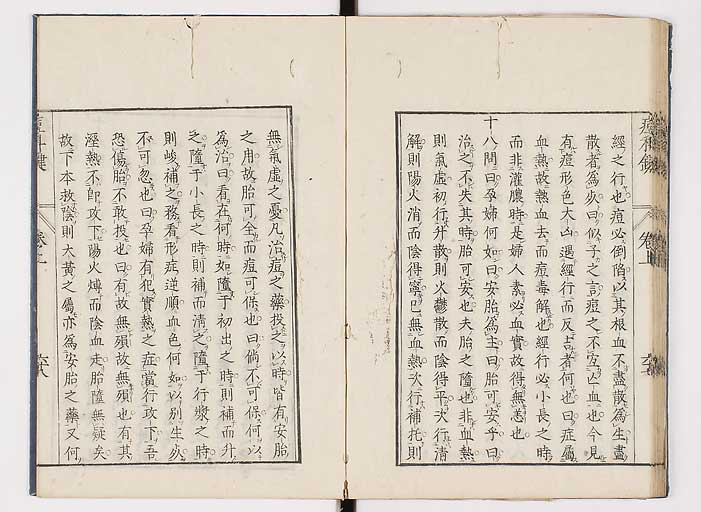 經之行也痘必倒陷以其根血不盡散為生盡
散者為死曰似子之言痘之不宜亡血也今見
有痘形色大凶遇經行而反吉者何也曰症屬
血熱故熱血去而痘毒解也經行必小長之時
而非灌膿時是婦人素必血實故得無恙也
十八問曰孕婦何如曰安胎為主曰胎可安乎曰
治之不失其時胎可安也夫胎之墮也非血熱
則氣虛初行升散則火鬱散而陰得平次行清
解則陽火消而陰得寧已無血熱次行補托則
無氣虛之憂凡治痘之藥投之以時皆有安胎
之用故胎可全而痘可保也曰倘不可保何以
為治曰看在何時如墮于初出之時則補而升
之墮于小長之時則補而清之墮于行漿之時
則峻補之務看形症逆順血色何如以別生死
不可忽也曰孕婦有犯實熱之症當行攻下吾
恐傷胎不敢投也曰有故無殞故無殞也有其
溼熱不卽攻下陽火煿而陰血走胎墮無疑矣
故下本救陰則大黃之屬亦為安胎之藥又何